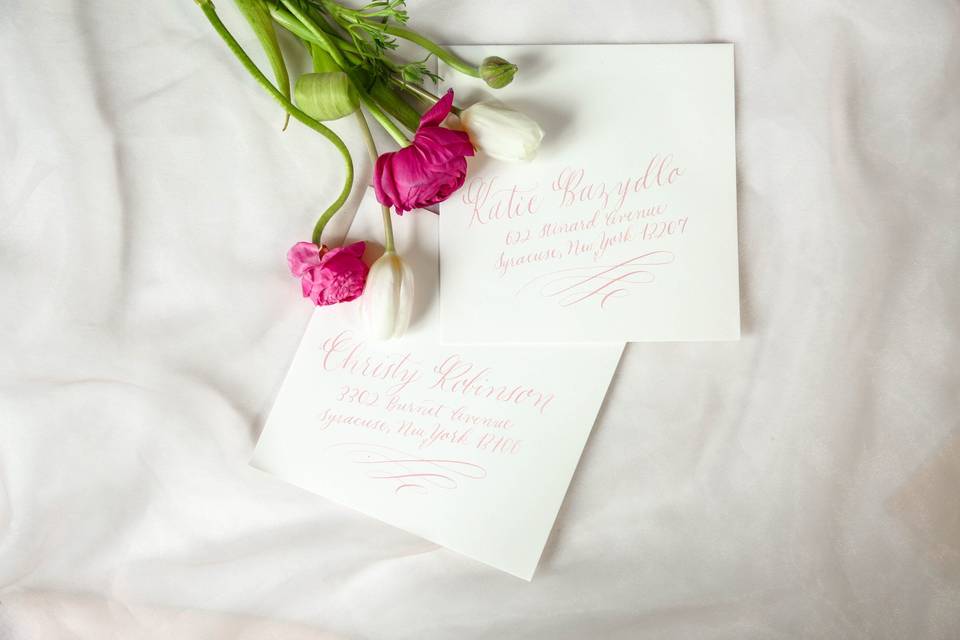 Katie Bazydlo
622 Stinard Avenue
Syracuse, New York 13207
Christy Robinson
3302 Burnet Avenue
Syracuse, New York 13206